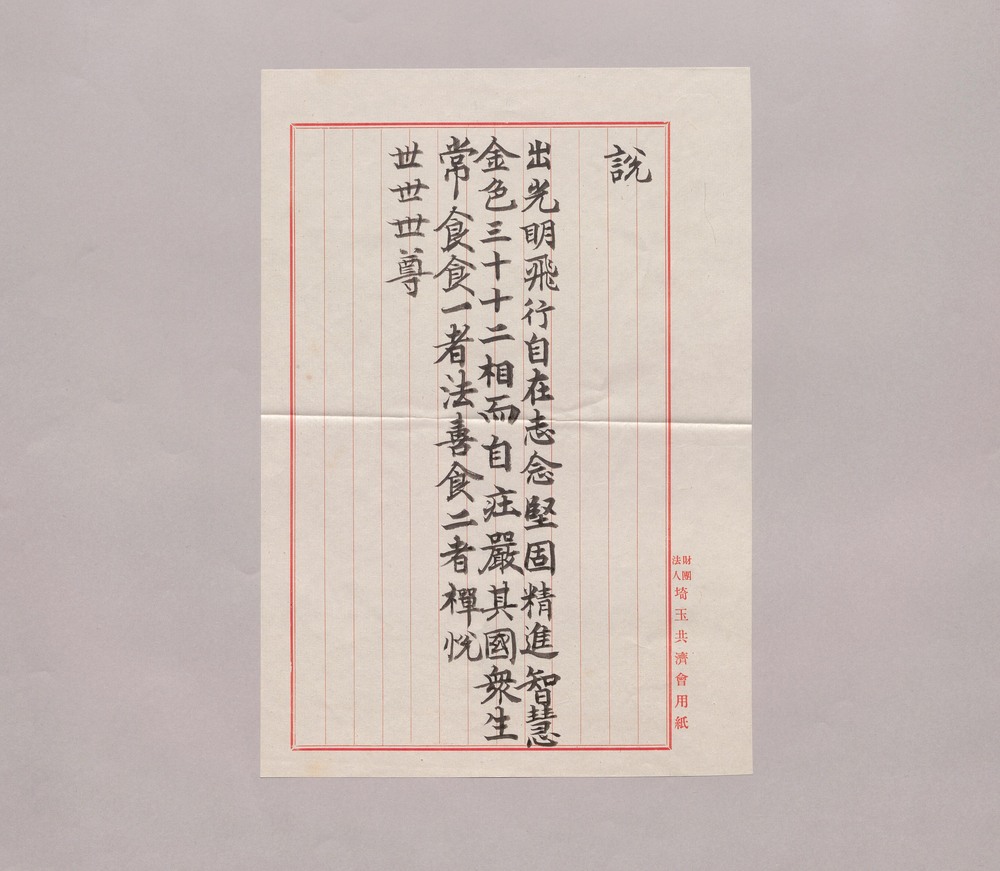 説
出光明飛行自在志念堅固精進智慧
金色三十十二相而自荘嚴其國衆生
常食食一者法喜食二者禪悦
世世世尊
財團
法人
埼玉共濟會用紙